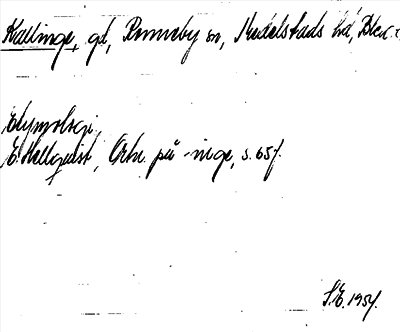 Kallinge, gd, Ronneby sn, Medelstads hd, Blek.
Etymologi,
E. Hellquist, Ortn. på -inge, s. 65f.
S.E. 1954.